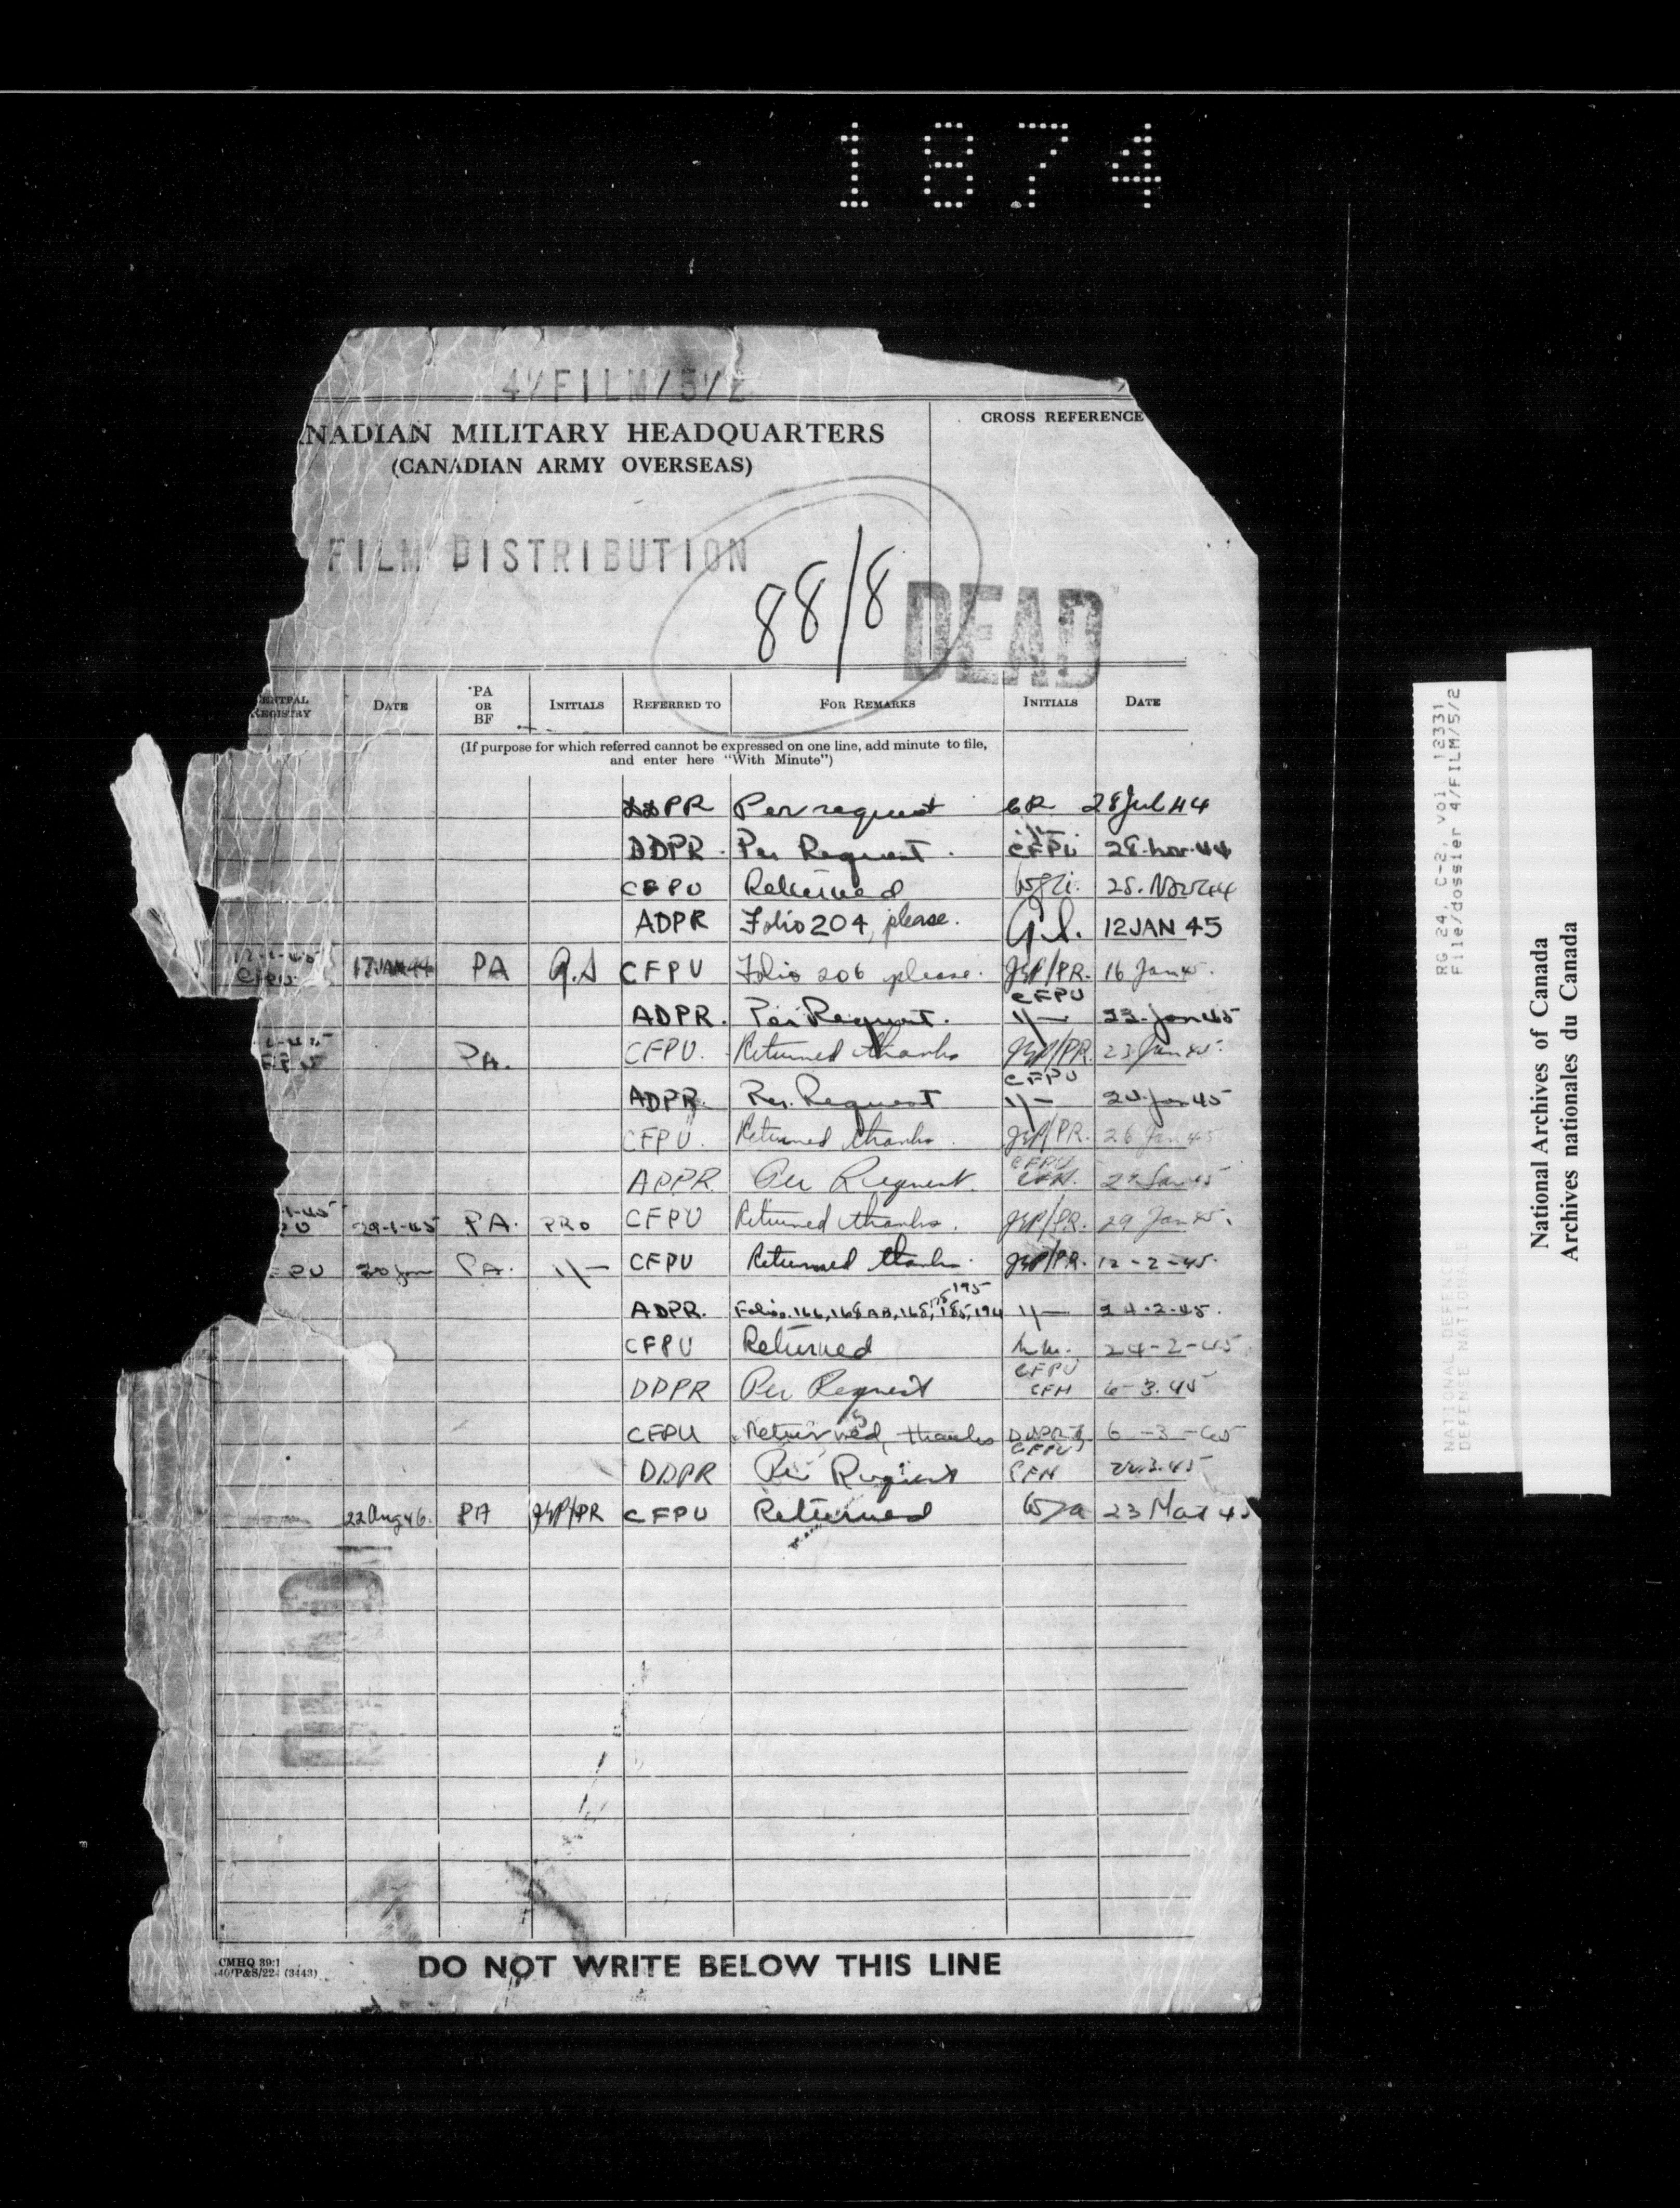 1874
4/FILM/5/2
NADIAN MILITARY HEADQUARTERS
(CANADIAN ARMY OVERSEAS)
CROSS REFERENCE
FILM DISTRIBUTION
88/8
DEAD
CENTRAL REGISTRY DATE PA OR BF INITIALS REFERRED TO FOR REMARKS INITIALS DATE
(If purpose for which referred cannot be expressed on one line, add minute to file,
and enter here "With Minute")
DDPR Per request 28 Jul 44
DDPR. Per Request. CFPU 28. Nov. 44
CFPU Returned 28. Nov 44
ADPR Folio 204, please. G.S. 12 JAN 45
12-1-45 CFPU 17 JAN 44 PA G.S CFPU Folio 206 please. JEP/PR. 16 Jan 45.
ADPR. Per Request. CFPU 11— 23. Jan 45
PA. CFPU. Returned thanks JEP/PR. 23 Jan 45.
ADPR. Per. Request CFPU 11— Jan 45
CFPU. Returned thanks. JEP/PR. 26 Jan 45
ADPR. Per Request. CFPU CFH. Jan 45
1-45 PU 29-1-45 PA. PRO CFPU Returned thanks. JEP/PR. 29 Jan 45.
PU 30 Jan PA. 11— CFPU Returned thanks. JEP/PR. 12-2-45.
ADPR. Folios. 166, 168 AB, 168, 175, 185, 194 195 11— 24.2.45.
CFPU Returned 24-2-45
DDPR Per Request CFPU CFH 6-3.45
CFPU Returned, thanks DDPR 6-3-45
DDPR Per Request CFPU CFH 3.45
22 Aug 46. PA JEP/PR CFPU Returned 23 Mar 45
DEAD
CMHQ 39:1
40/P&S/224 (3443)
DO NOT WRITE BELOW THIS LINE
RG 24, C-2, vol. 12331
File/dossier 4/FILM/5/2
NATIONAL DEFENCE
DEFENSE NATIONALE
National Archives of Canada
Archives nationales du Canada